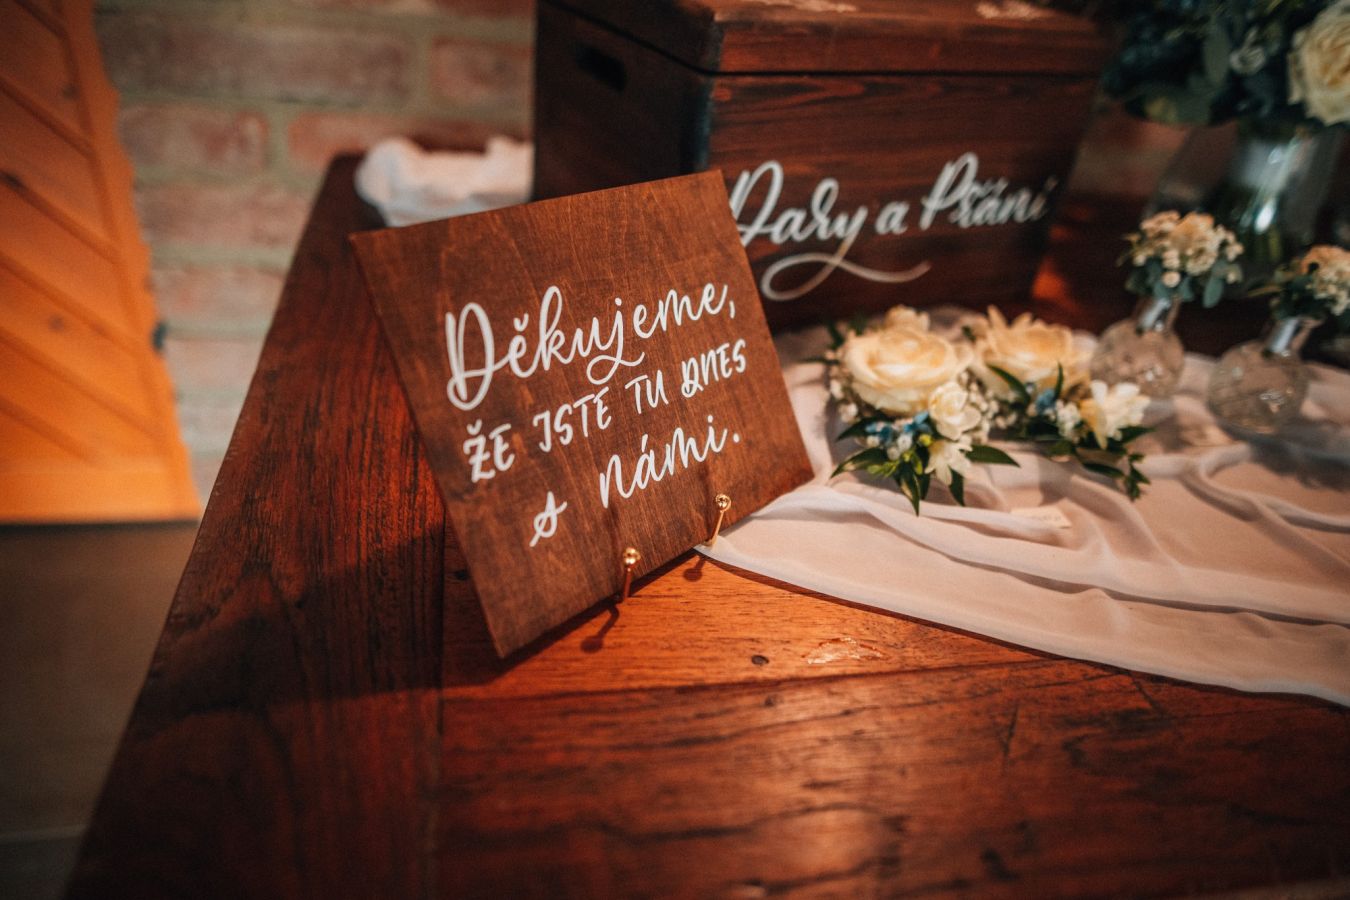 Děkujeme,
ŽE JSTE TU DNES
s námi.
Dary a Přání